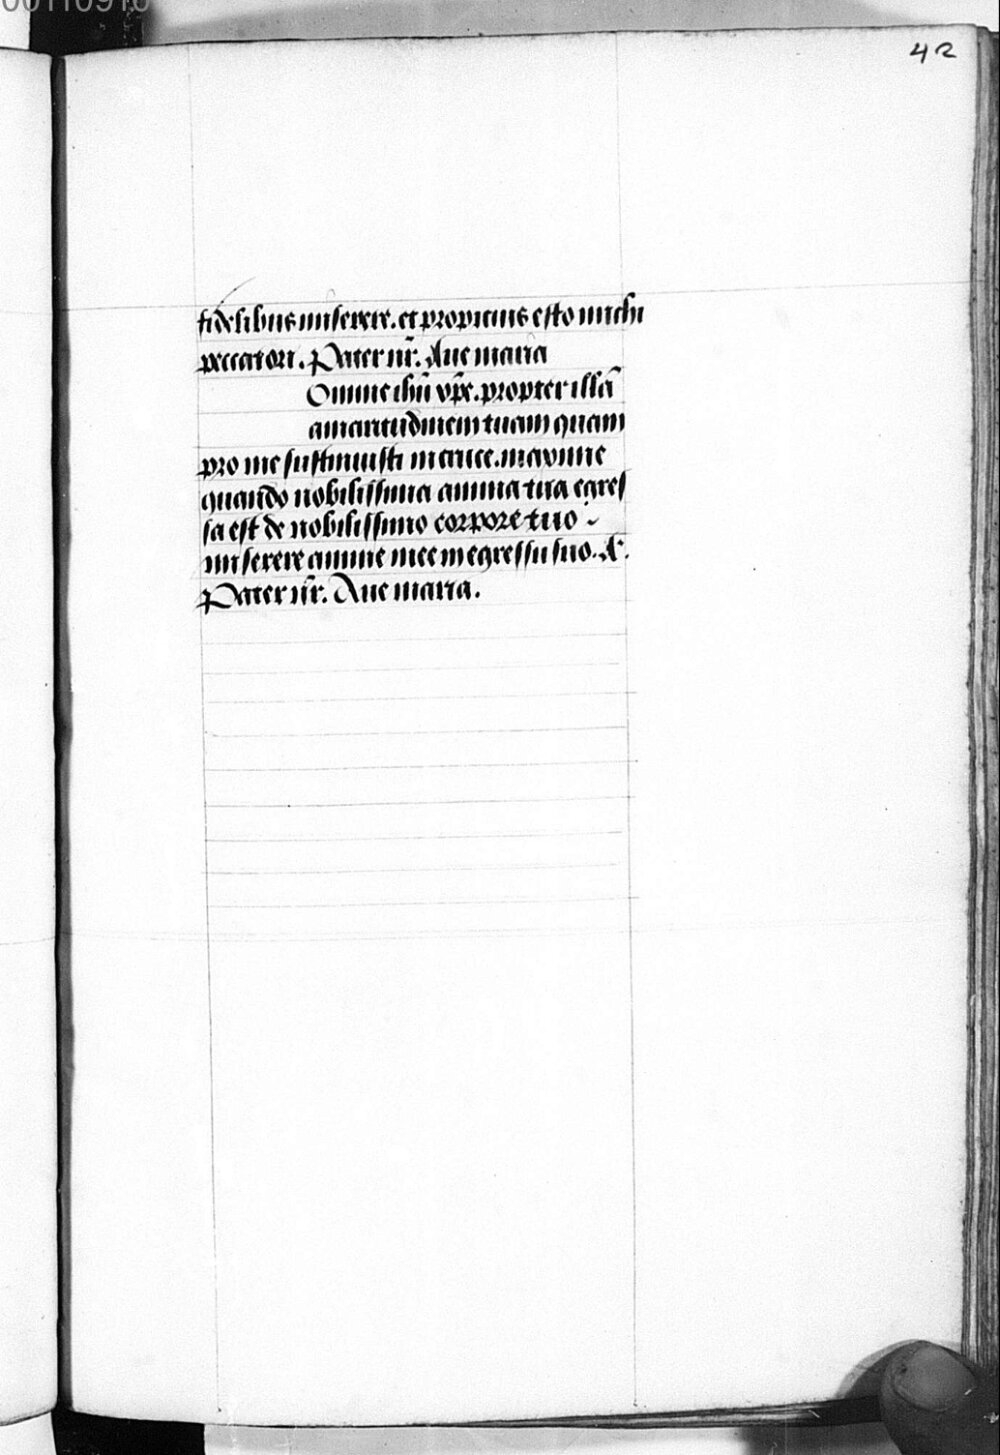 00110910
42
fidelibus miserere. et propicius esto michi
peccatori. Pater nr̄. Aue maria
Omine ihū xp̄e. propter illā
amaritudinem tuam quam
pro me sustinuisti in cruce. maxime
quando nobilissima anima tua egres
sa est de nobilissimo corpore tuo
miserere anime mee in egressu suo. A.
Pater nr̄. Aue maria.